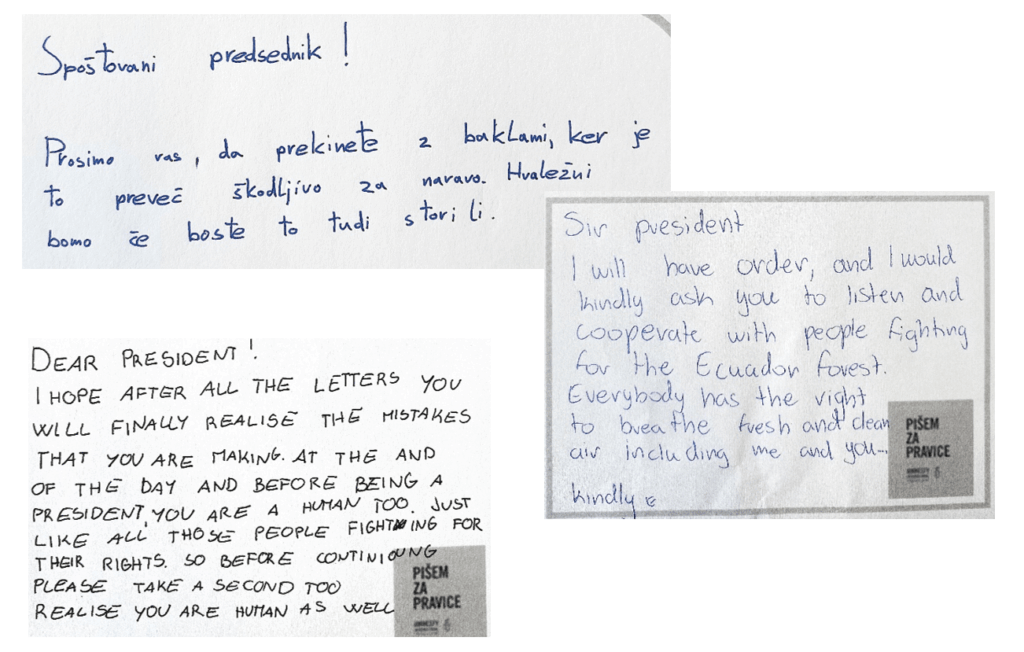 Spoštovani predsednik!
Prosimo vas, da prekinete z baklami, ker je
to preveč škodljivo za naravo. Hvaležni
bomo če boste to tudi storili.
Sir president
I will have order, and I would
kindly ask you to listen and
cooperate with people fighting
for the Ecuador forest.
Everybody has the right
to breathe fresh and clean
air including me and you...
kindly
PIŠEM
ZA
PRAVICE
DEAR PRESIDENT!
I HOPE AFTER ALL THE LETTERS YOU
WILL FINALLY REALISE THE MISTAKES
THAT YOU ARE MAKING. AT THE AND
OF THE DAY AND BEFORE BEING A
PRESIDENT, YOU ARE A HUMAN TOO. JUST
LIKE ALL THOSE PEOPLE FIGHTING FOR
THEIR RIGHTS. SO BEFORE CONTINIOUNG
PLEASE TAKE A SECOND TOO
REALISE YOU ARE HUMAN AS WELL
PIŠEM
ZA
PRAVICE
AMNESTY